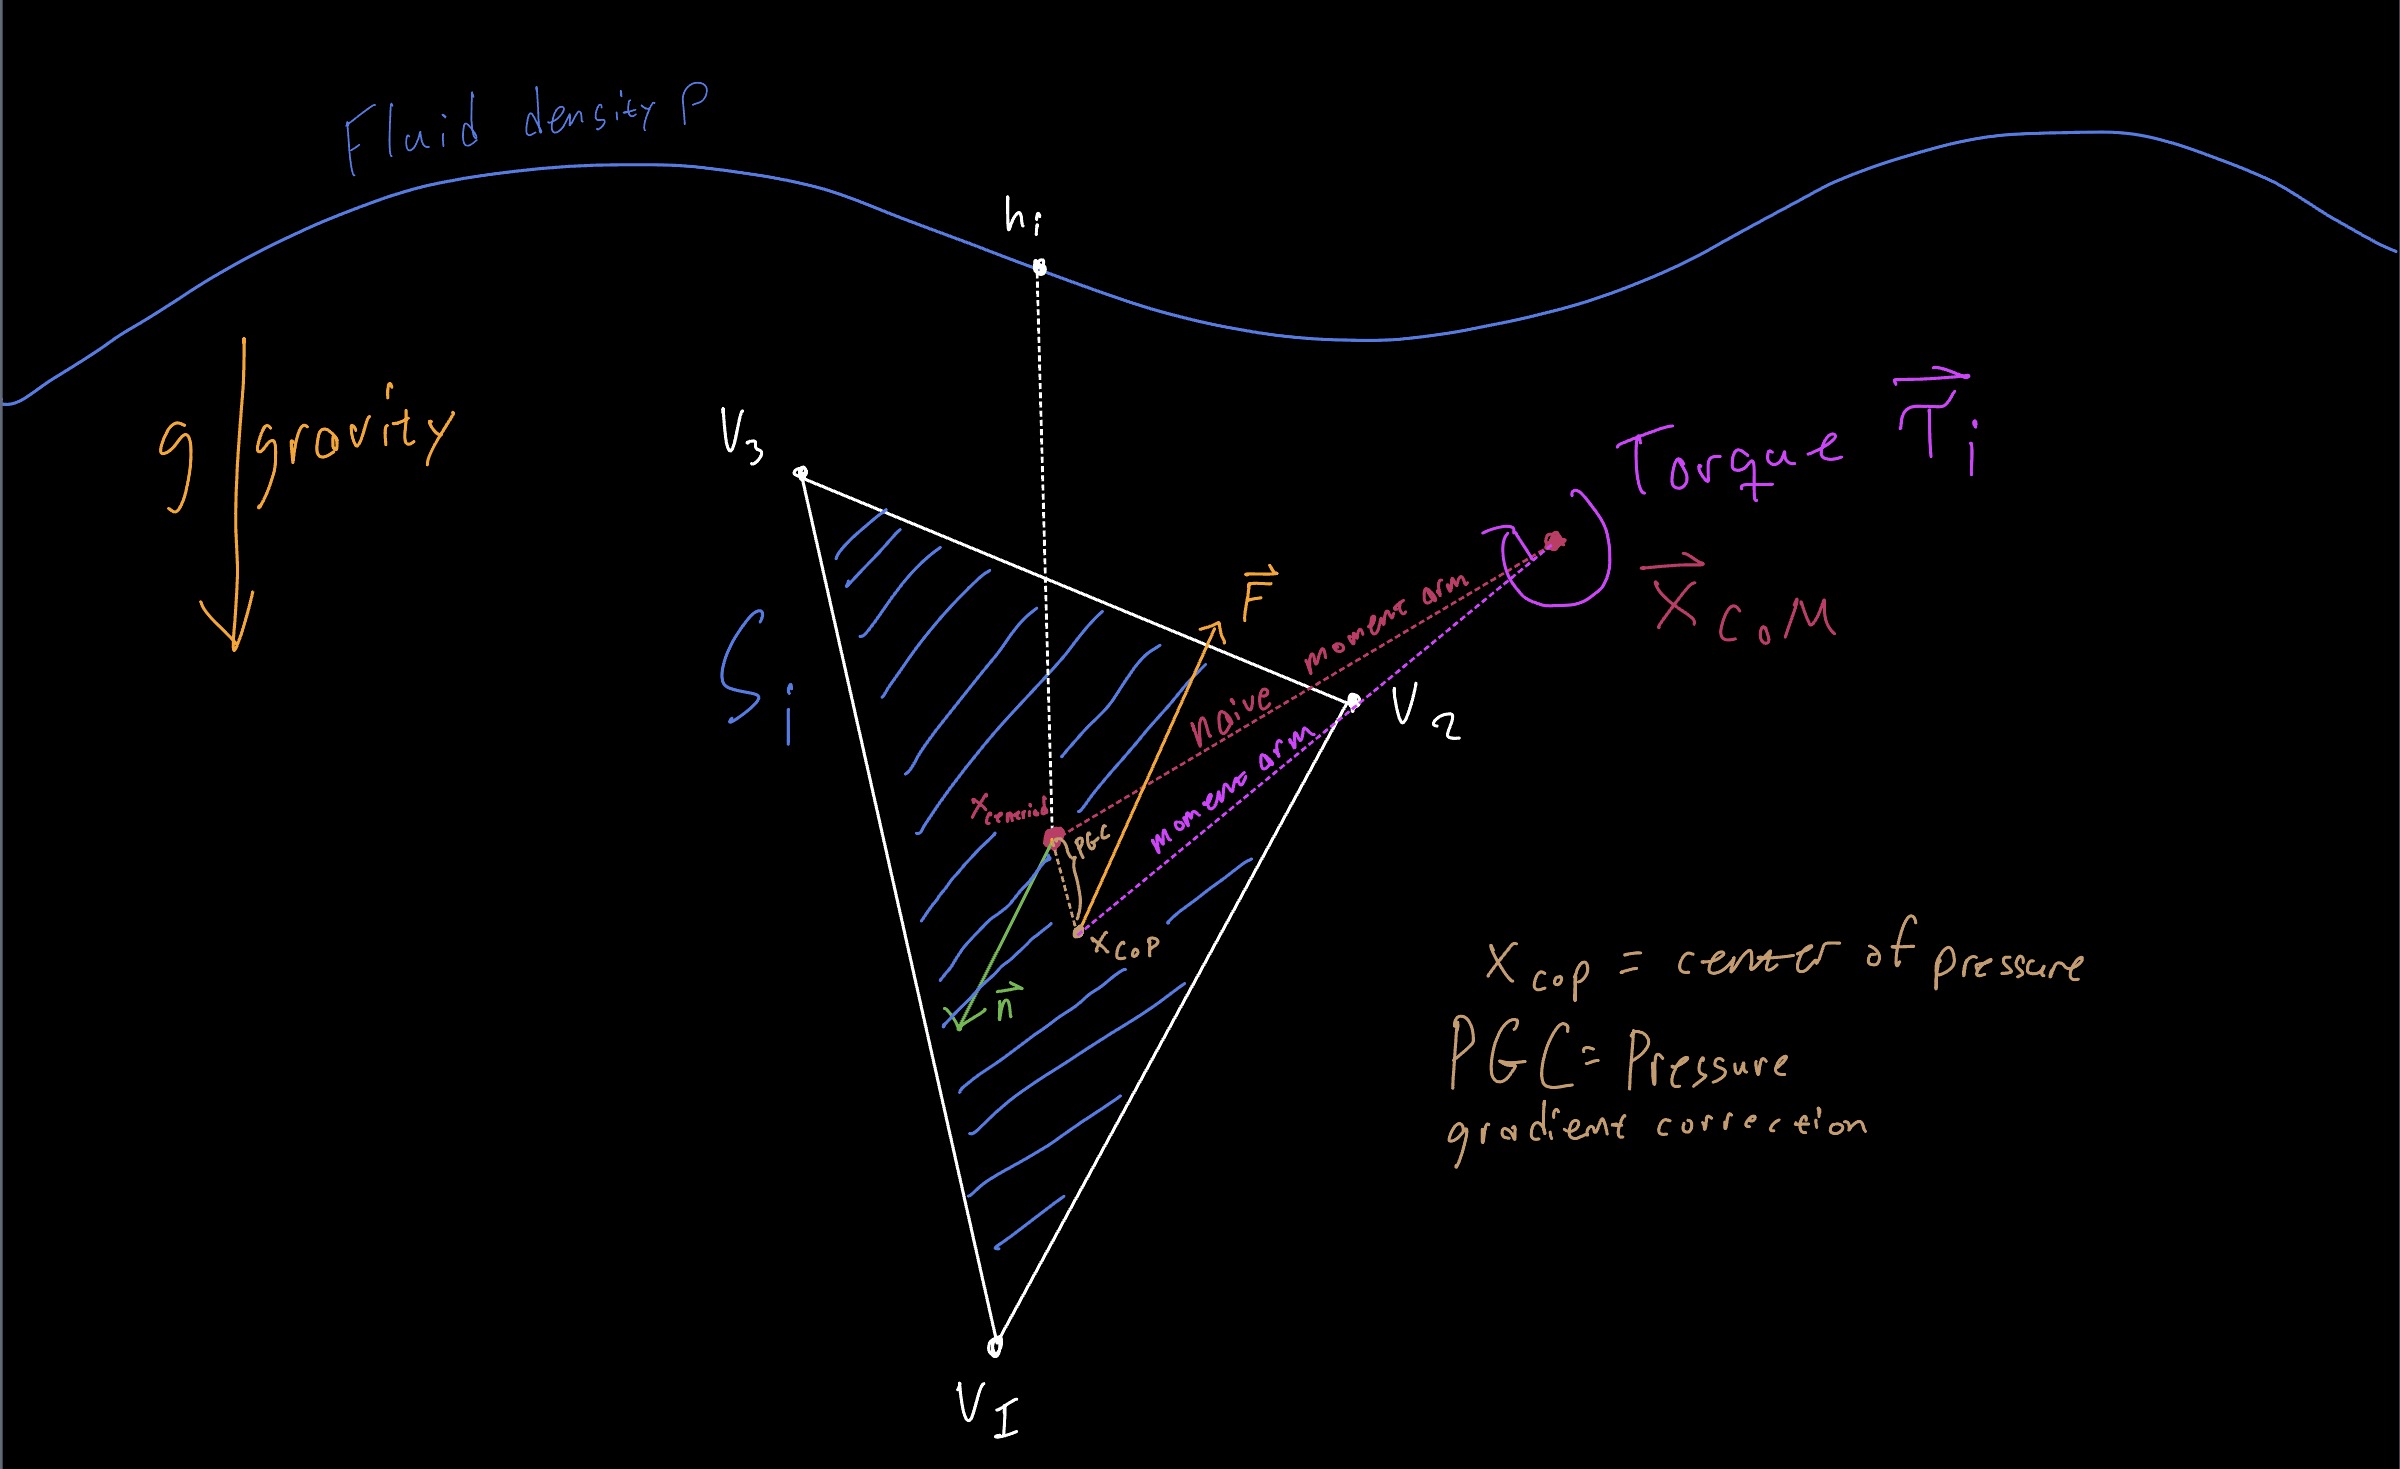 Fluid density ρ
h i
g gravity
V 3
Torque T i
S i
F
X CoM
naive moment arm
V 2
moment arm
X centriod
PGC
X CoP
n
X cop = center of pressure
PGC = Pressure
gradient correction
V I